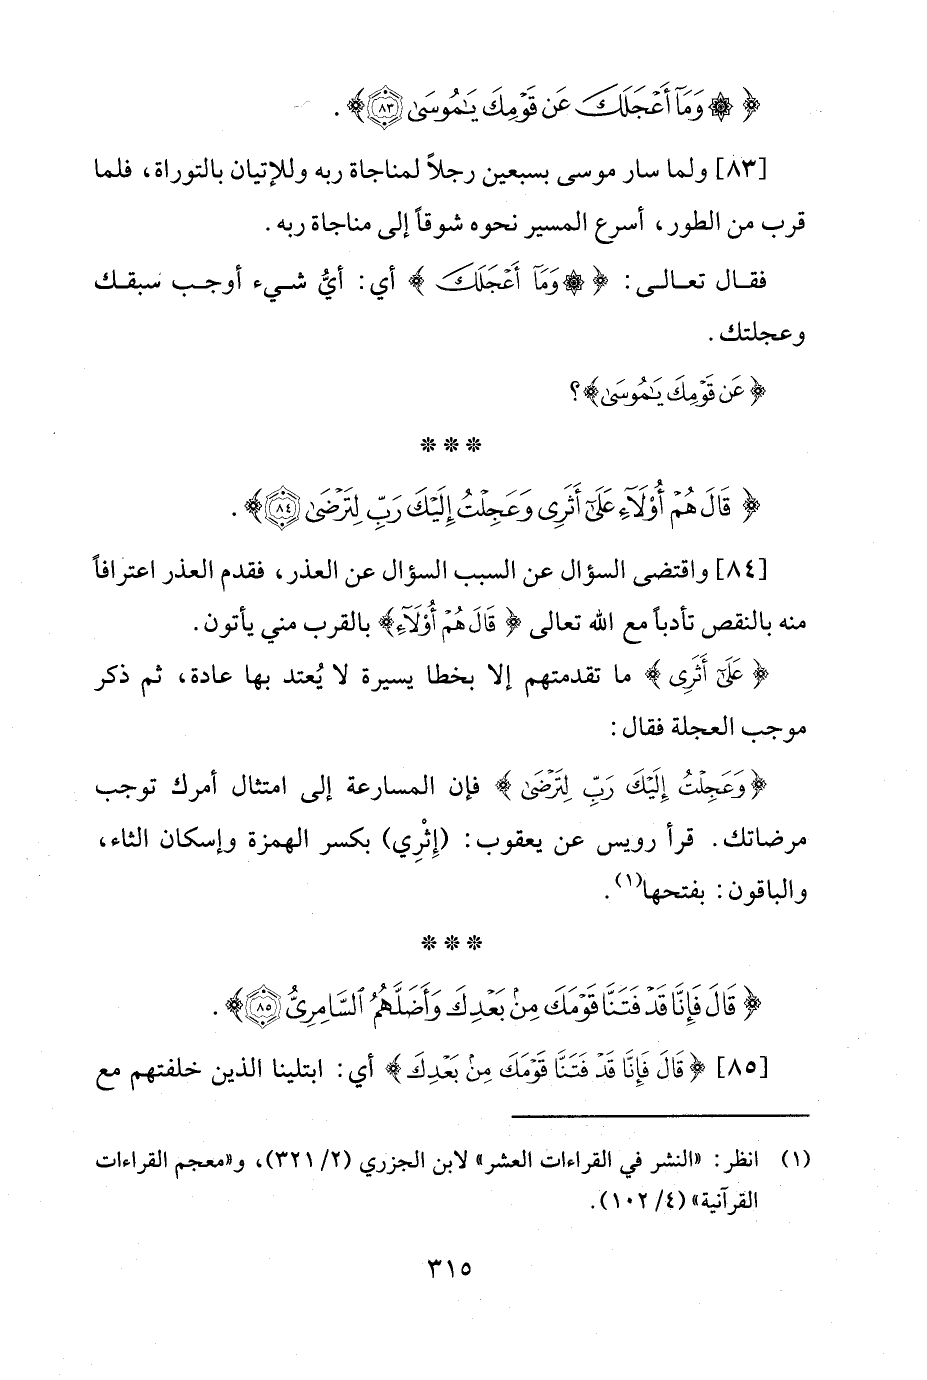 ﴿ ۞ وَمَآ أَعۡجَلَكَ عَن قَوۡمِكَ يَٰمُوسَىٰ ٨٣ ﴾ .
[٨٣] ولما سار موسى بسبعين رجلاً لمناجاة ربه وللإتيان بالتوراة، فلما
قرب من الطور، أسرع المسير نحوه شوقاً إلى مناجاة ربه .
فقال تعالى : ﴿ ۞ وَمَآ أَعۡجَلَكَ ﴾ أي : أيُّ شيء أوجب سبقك
وعجلتك .
﴿ عَن قَوۡمِكَ يَٰمُوسَىٰ ﴾ ؟
* * *
﴿ قَالَ هُمۡ أُوْلَآءِ عَلَىٰٓ أَثَرِى وَعَجِلۡتُ إِلَيۡكَ رَبِّ لِتَرۡضَىٰ ٨٤ ﴾ .
[٨٤] واقتضى السؤال عن السبب السؤال عن العذر، فقدم العذر اعترافاً
منه بالنقص تأدباً مع الله تعالى ﴿ قَالَ هُمۡ أُوْلَآءِ ﴾ بالقرب مني يأتون .
﴿ عَلَىٰٓ أَثَرِى ﴾ ما تقدمتهم إلا بخطا يسيرة لا يُعتد بها عادة، ثم ذكر
موجب العجلة فقال :
﴿ وَعَجِلۡتُ إِلَيۡكَ رَبِّ لِتَرۡضَىٰ ﴾ فإن المسارعة إلى امتثال أمرك توجب
مرضاتك . قرأ رويس عن يعقوب : (إِثْرِي) بكسر الهمزة وإسكان الثاء،
والباقون : بفتحها(١) .
* * *
﴿ قَالَ فَإِنَّا قَدۡ فَتَنَّا قَوۡمَكَ مِنۢ بَعۡدِكَ وَأَضَلَّهُمُ ٱلسَّامِرِىُّ ٨٥ ﴾ .
[٨٥] ﴿ قَالَ فَإِنَّا قَدۡ فَتَنَّا قَوۡمَكَ مِنۢ بَعۡدِكَ ﴾ أي : ابتلينا الذين خلفتهم مع
(١) انظر : «النشر في القراءات العشر» لابن الجزري (٢/ ٣٢١)، و«معجم القراءات
القرآنية» (٤/ ١٠٢) .
٣١٥